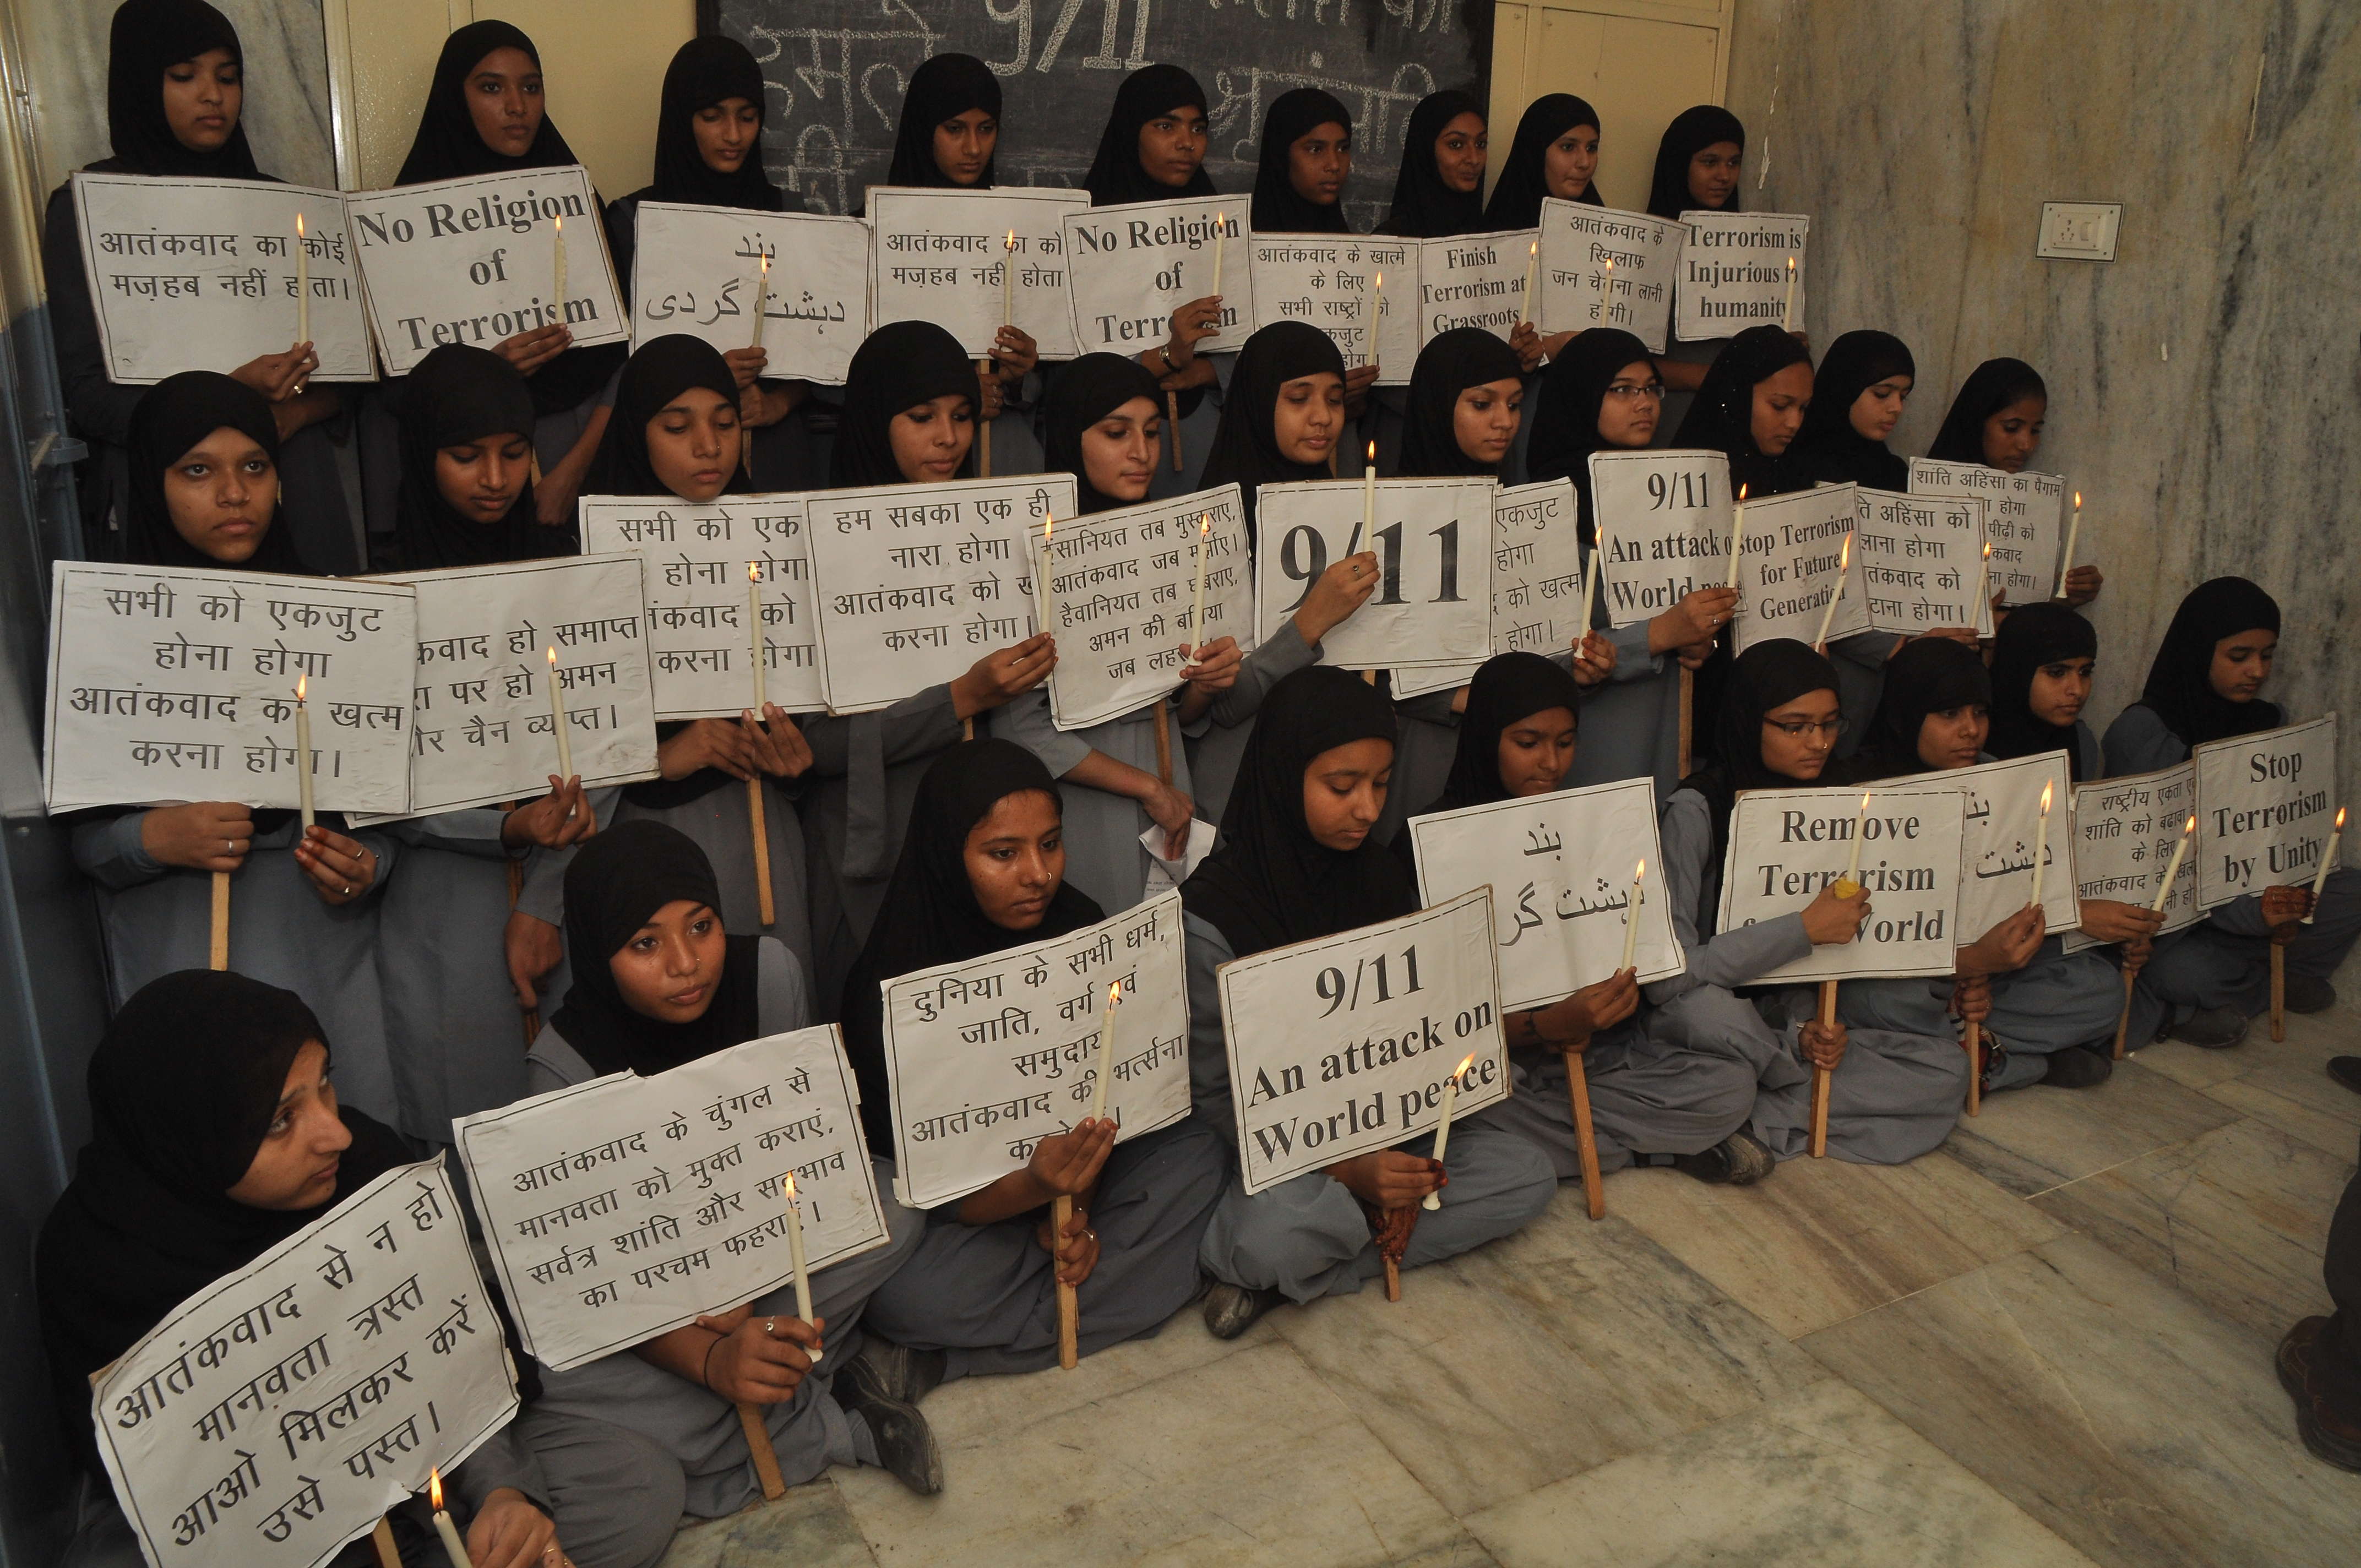 9/11
हमले
श्रद्धांजलि
आतंकवाद का कोई
मज़हब नहीं होता।
No Religion
of
Terrorism
بند
دہشت گردی
आतंकवाद का को
मज़हब नहीं होता
No Religion
of
आतंकवाद के खात्मे
के लिए
सभी राष्ट्रों को
Finish
Terrorism at
Grassroots
आतंकवाद के
खिलाफ
जन चेतना लानी
होगी।
Terrorism is
Injurious to
humanity
सभी को एकजुट
होना होगा
आतंकवाद को खत्म
करना होगा।
कवाद हो समाप्त
पर हो अमन
चैन व्याप्त।
सभी को एक
होना होगा
तंकवाद को
करना होगा
हम सबका एक ही
नारा होगा
आतंकवाद को
करना होगा।
सानियत तब मुस्कुराए,
आतंकवाद जब मुर्झाए।
हैवानियत तब घबराए,
अमन की बगिया
जब
9/11
एकजुट
होगा
को खत्म
होगा।
9/11
An attack o
World
Stop Terrorism
for Future
Generation
ते अहिंसा को
लाना होगा
तंकवाद को
टाना होगा।
शांति अहिंसा का पैगाम
होगा
पीढ़ी को
कवाद
ना होगा।
आतंकवाद से न हो
मानवता त्रस्त
आओ मिलकर करें
उसे पस्त।
आतंकवाद के चुंगल से
मानवता को मुक्त कराएं,
सर्वत्र शांति और सद्भाव
का परचम फहराएं।
दुनिया के सभी धर्म,
जाति, वर्ग एवं
समुदाय
आतंकवाद की भर्त्सना
9/11
An attack on
World peace
بند
دہشت گر
Remove
Terrorism
World
بند
دہشت
राष्ट्रीय एकता
शांति को बढ़ावा
के लिए
आतंकवाद के
Stop
Terrorism
by Unity